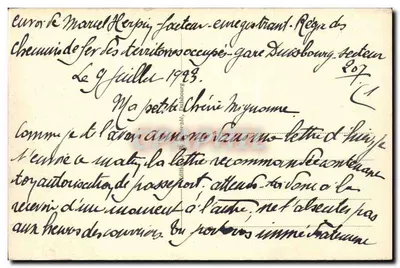 envoi de Marcel Herpin, facteur enregistrant. Régie des
chemins de fer des territoires occupés gare Duisbourg. secteur
207
Le 9 Juillet 1923.
Ma petite Chérie Mignonne.
Comme je t'l'avais annoncé dans ma lettre d'hier, je
t'envoie ce matin la lettre recommandée contenant
ton autorisation de passeport. attends toi donc à la
recevoir d'un moment à l'autre, ne t'absentes pas
aux heures des courriers tu pourras immédiatement